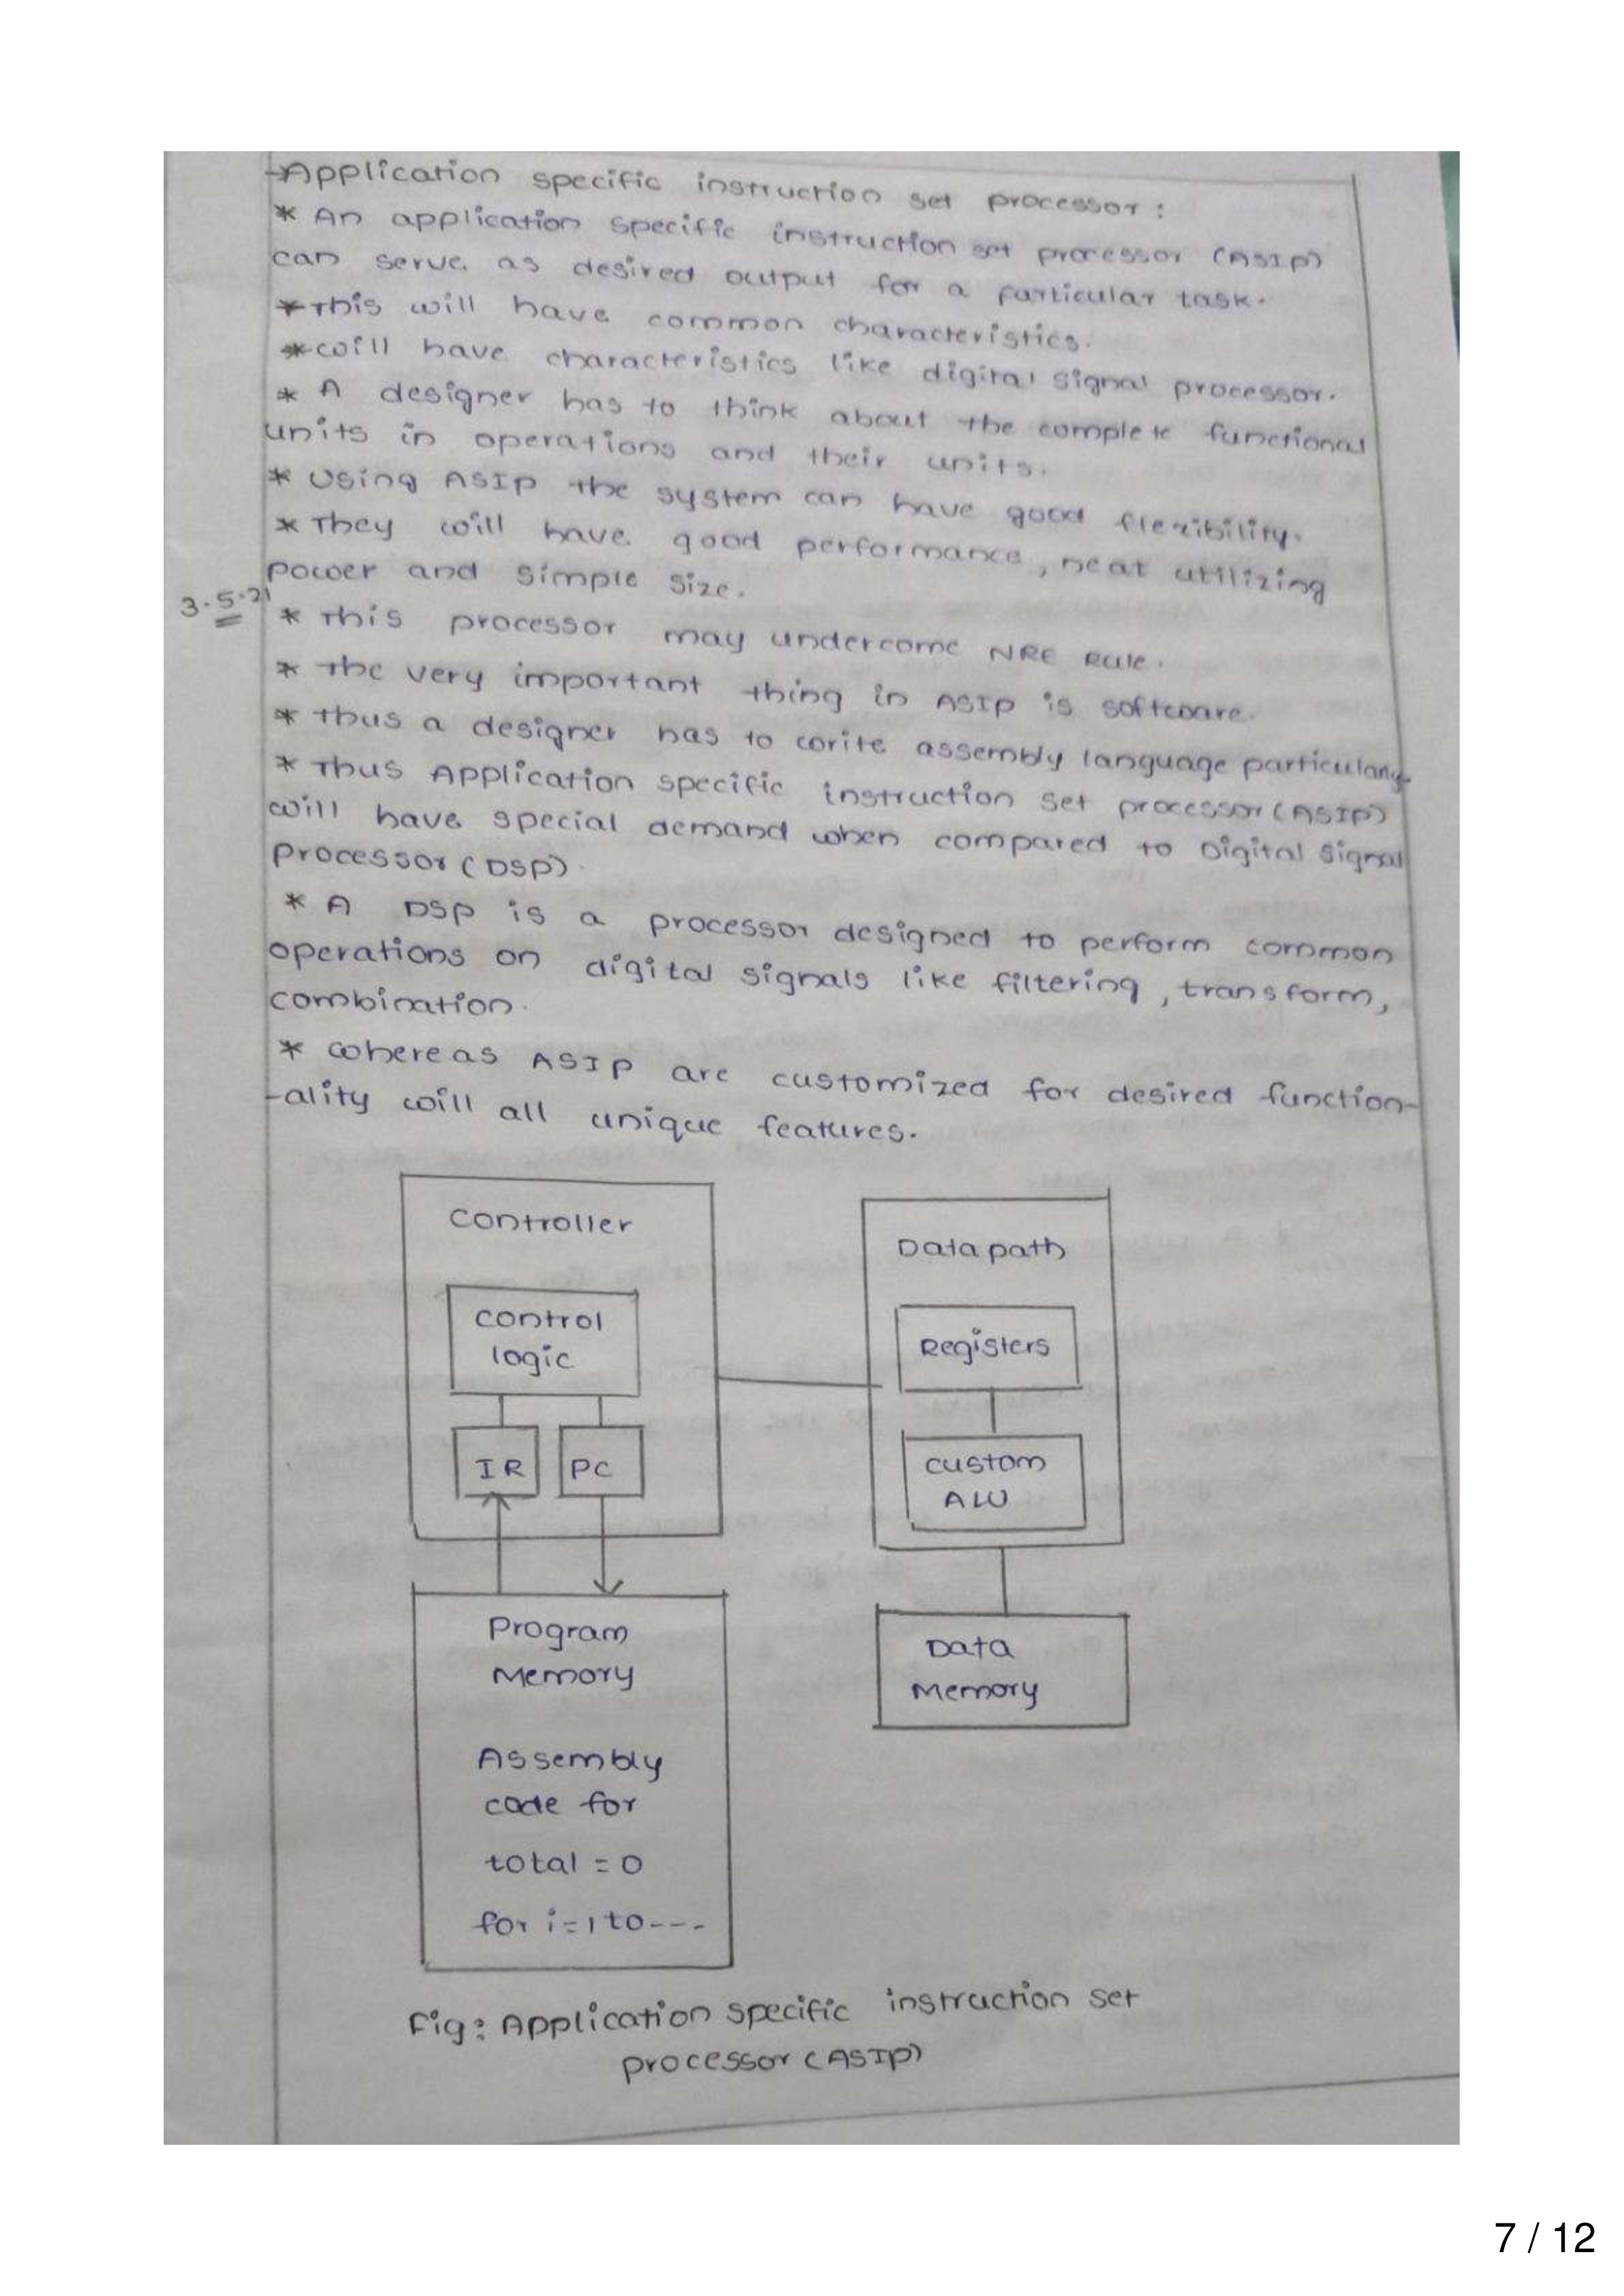 →Application specific instruction set processor :
* An application specific instruction set processor (ASIP)
can serve as desired output for a particular task.
* This will have common characteristics.
* will have characteristics like digital signal processor.
* A designer has to think about the complete functional
units in operations and their units.
* Using ASIP the system can have good flexibility.
* They will have good performance, neat utilizing
power and simple size.
3.5.21
* This processor may undercome NRE Rule.
* The very important thing in ASIP is software.
* thus a designer has to write assembly language particularly
* Thus Application specific instruction set processor (ASIP)
will have special demand when compared to Digital Signal
Processor (DSP).
* A DSP is a processor designed to perform common
operations on digital signals like filtering, transform,
combination.
* whereas ASIP are customized for desired function-
-ality will all unique features.
Controller
Data path
control
logic
Registers
IR PC
custom
ALU
Program
Memory
Data
Memory
Assembly
code for
total = 0
for i=1 to ---
Fig: Application specific instruction set
processor (ASIP)
7 / 12